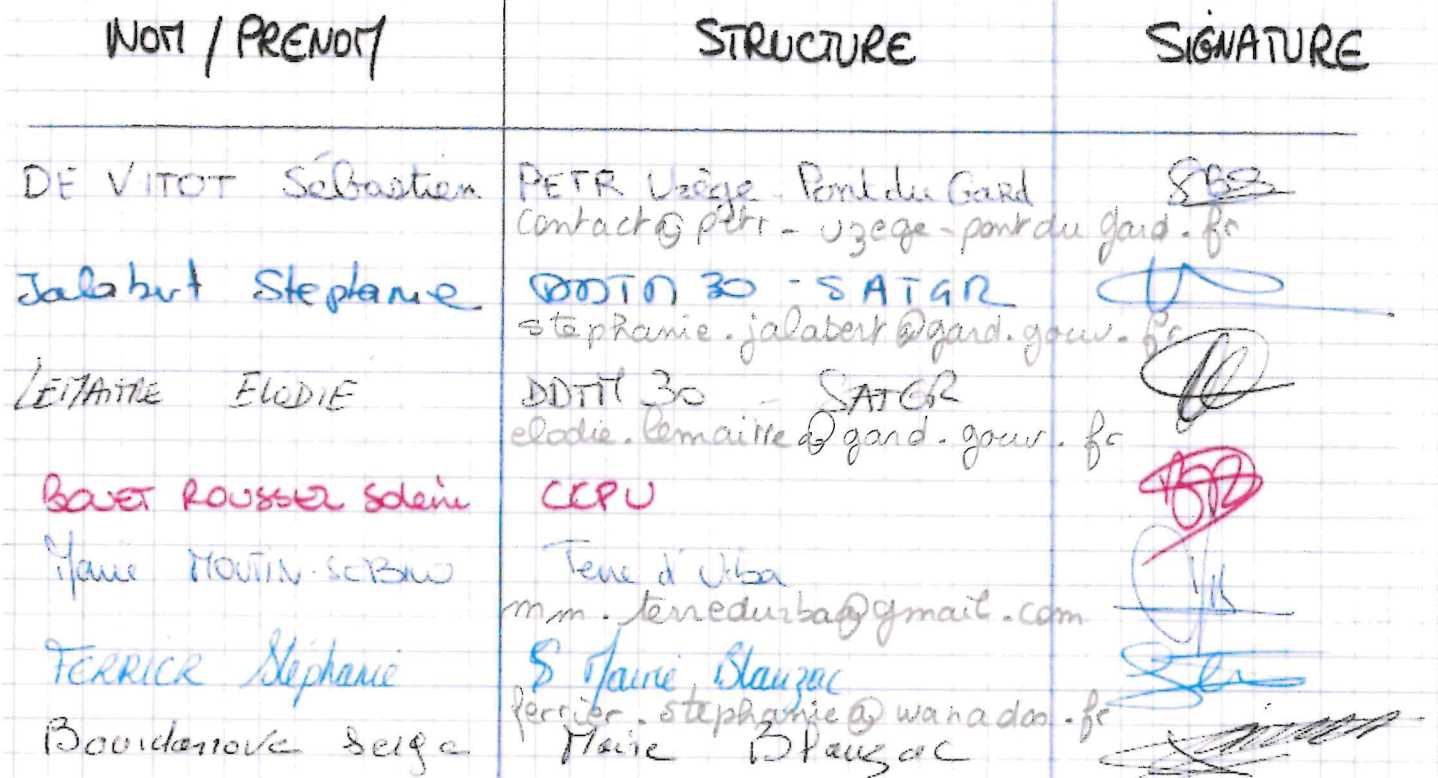 NOM / PRENOM STRUCTURE SIGNATURE
DE VITOT Sébastien PETR Uzège - Pont du Gard
contact@petr-uzege-pontdugard.fr
Jalabert Stephanie DDTM 30 - SATGR
stephanie.jalabert@gard.gouv.fr
LEMAITRE ELODIE DDTM 30 - SATGR
elodie.lemaitre@gard.gouv.fr
ROUSSEL CCPU
Marie MOUTIN
mm.terredurba@gmail.com
FERRIER Stéphanie Mairie Blauzac
ferrier.stephanie@wanadoo.fr
Serge Maire Blauzac